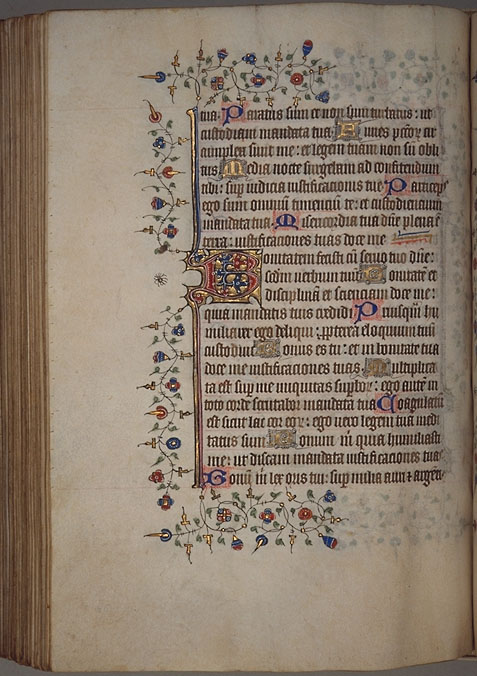 tua. Paratus sum et non sum turbatus: ut
custodiam mandata tua. Funes pctor cir
cumplexi sunt me: et legem tuam non su obli
tus Media nocte surgebam ad confitendum
tibi: sup iudicia iustificationis tue Particeps
ego sum omnium timentiu te: et custodientium
mandata tua. Misericordia tua dne plena e
terra: iustificationes tuas doce me
Bonitatem fecisti cu seruo tuo dne:
scdm uerbum tuu Bonitate et
disciplina et scientiam doce me:
quia mandatis tuis credidi Priusqm hu
miliarer ego deliqui: ppterea eloquium tuu
custodiui Bonus es tu: et in bonitate tua
doce me iustificationes tuas Multiplica
ta est sup me iniquitas supbor: ego aute in
toto corde scrutabor mandata tua Coagulatu
est sicut lac cor eor: ego uero legem tua medi
tatus sum Bonum m quia humiliasti
me: ut discam iustificationes tuas
Bonu m lex oris tui: sup milia auri et argen